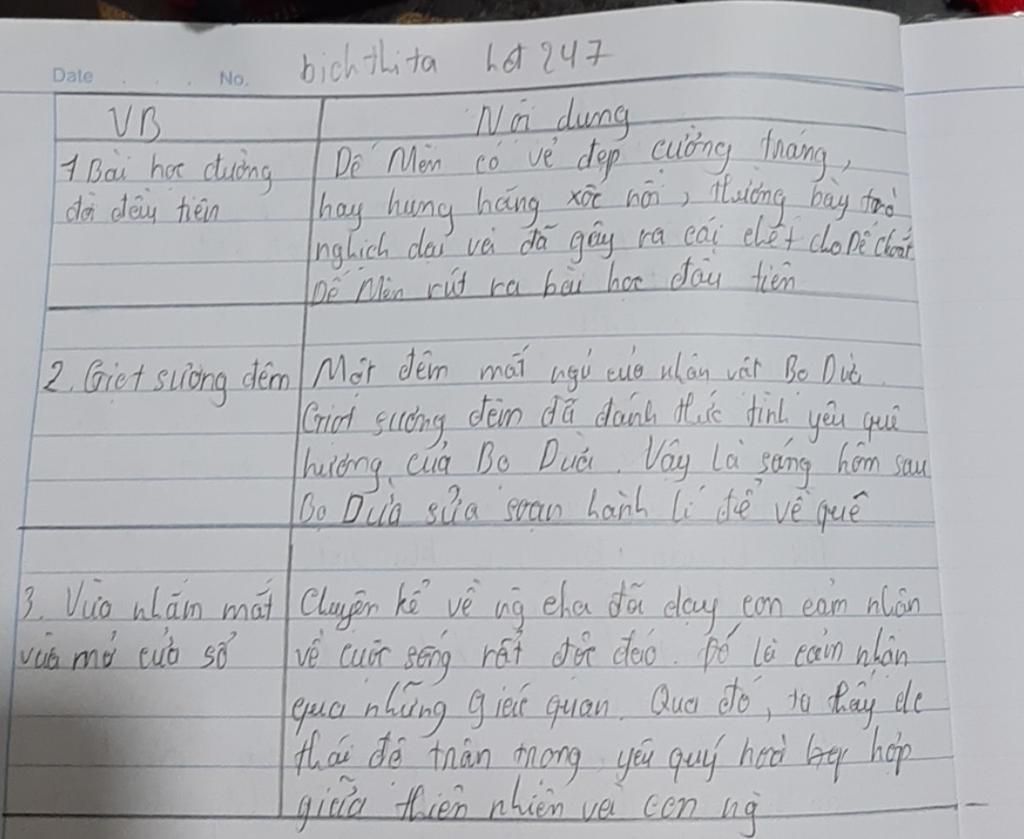 Date No. bichthita hđ 247
VB Nội dung
1 Bài học đường Dế Mèn có vẻ đẹp cường tráng,
đời đầy tiên hay hung hăng xốc nổi, thường bày trò
nghịch dại và đã gây ra cái chết cho Dế choắt
Dế Mèn rút ra bài học đầu tiên
2. Giọt sương đêm Một đêm mất ngủ của nhân vật Bọ Dừa
Giọt sương đêm đã đánh thức tình yêu quê
hương của Bọ Dừa. Vậy là sáng hôm sau
Bọ Dừa sửa soạn hành lí để về quê
3. Vừa nhắm mắt Chuyện kể về ng cha đã dạy con cảm nhận
vừa mở cửa sổ về cuộc sống rất độc đáo. Đó là cảm nhận
qua những giác quan. Qua đó, ta thấy đc
thái độ trân trọng yêu quý hoà hợp
giữa thiên nhiên và con ng